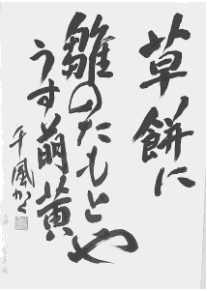 草餅に
雛のたもとや
うす萌黄
千風かく